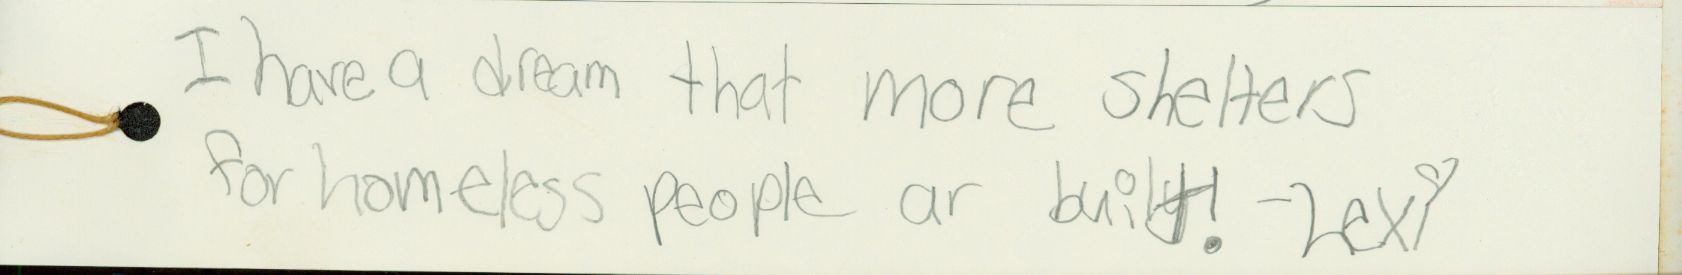 I have a dream that more shelters
for homeless people ar built! -Lexi